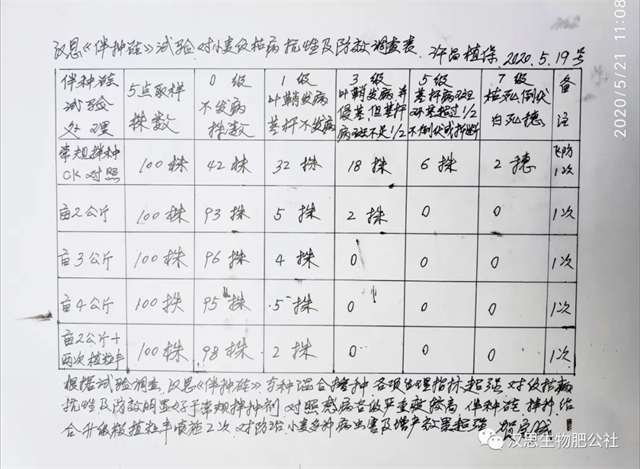 汉思《伴种硅》试验对小麦纹枯病抗性及防效调查表 许昌植保 2020.5.19号
伴种硅试验处理 5点取样株数 0级不发病株数 1级叶鞘发病茎秆不发病 3级叶鞘发病并侵茎但茎秆病斑不足1/2 5级茎秆病斑环茎超过1/2不倒伏或折断 7级枯死倒伏白死穗 备注
常规拌种CK对照 100株 42株 32株 18株 6株 2穗 飞防1次
亩2公斤 100株 93株 5株 2株 0 0 1次
亩3公斤 100株 96株 4株 0 0 0 1次
亩4公斤 100株 95株 5株 0 0 0 1次
亩2公斤+两次植粒丰 100株 98株 2株 0 0 0 1次
根据试验调查,汉思《伴种硅》与种混合播种 各项生理指标超强 对纹枯病
抗性及防效明显好于常规拌种剂 对照发病各级严重度较高 伴种硅拌种结
合升级版植粒丰喷施2次 对防治小麦多种病虫害及增产效果超强
汉思生物肥公社
2020/5/21 11:08